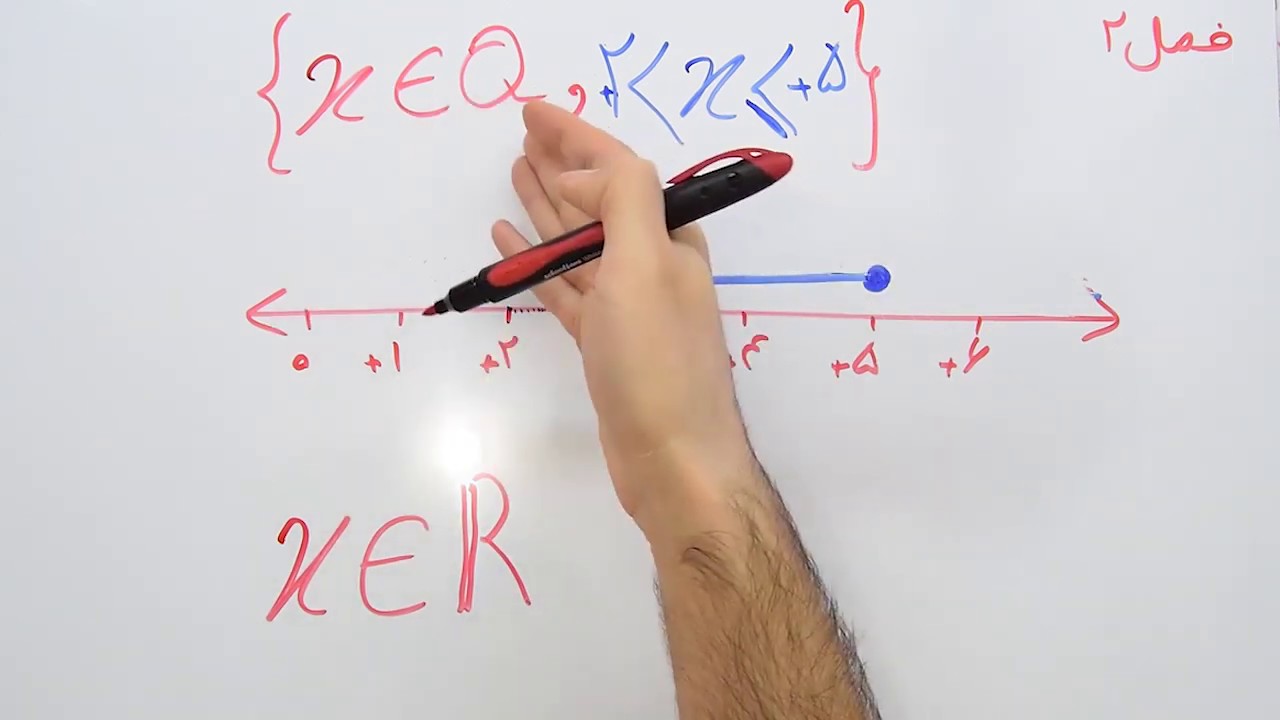 فصل ۲
{x ∈ Q , +۲ < x ≤ +۵}
۰ +۱ +۲ +۴ +۵ +۶
x ∈ ℝ